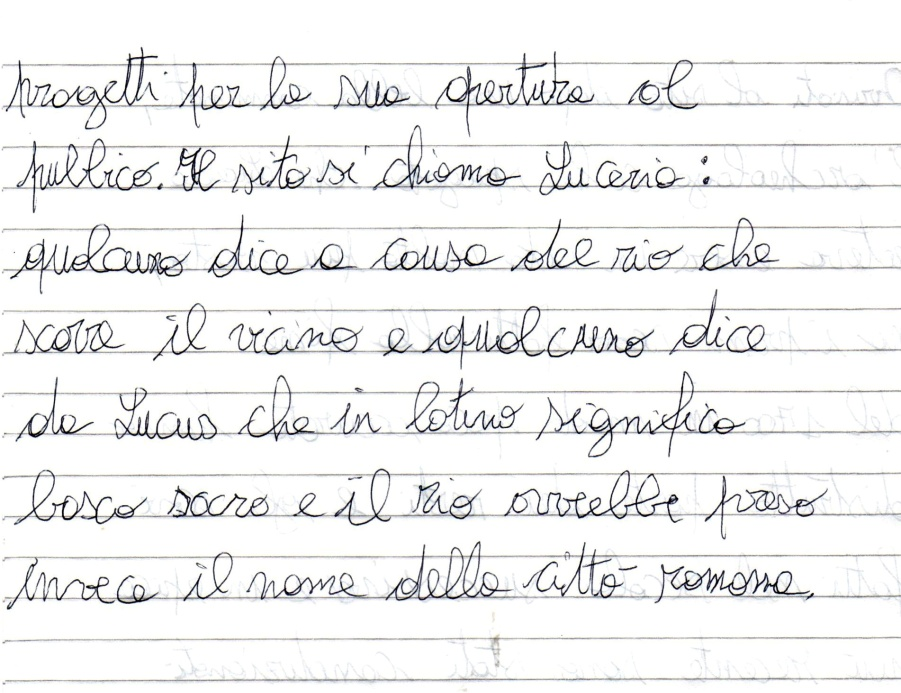 progetti per la sua apertura al
publico. Il sito si chiama Luceria:
qualcuno dice a causa del rio che
scorre il vicino e qualcuno dice
da Lucus che in latino significa
bosco sacro e il rio avrebbe preso
invece il nome della città romana.